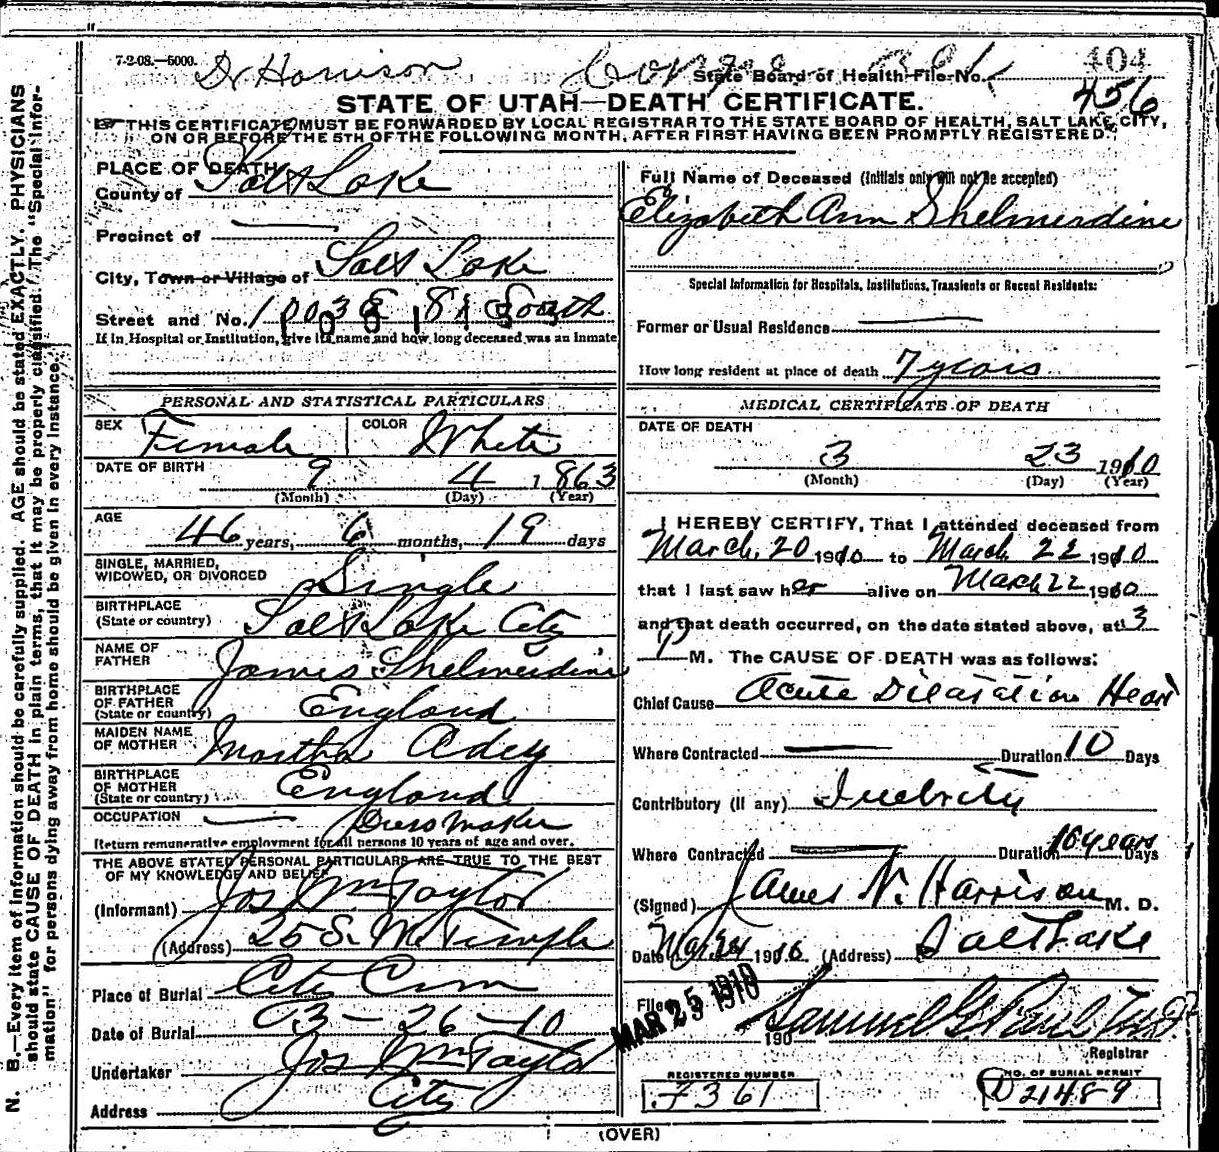 7-2-08.—5000. Dr Harrison
State Board of Health File No. 404
456
STATE OF UTAH—DEATH CERTIFICATE.
☞ THIS CERTIFICATE MUST BE FORWARDED BY LOCAL REGISTRAR TO THE STATE BOARD OF HEALTH, SALT LAKE CITY,
ON OR BEFORE THE 5TH OF THE FOLLOWING MONTH, AFTER FIRST HAVING BEEN PROMPTLY REGISTERED.
PLACE OF DEATH
County of Salt Lake
Precinct of
City, Town or Village of Salt Lake
Street and No. 1003 E 8th South
If in Hospital or Institution, give its name and how long deceased was an inmate
PERSONAL AND STATISTICAL PARTICULARS
SEX Female COLOR White
DATE OF BIRTH 9 4 1863
(Month) (Day) (Year)
AGE 46 years, 6 months, 19 days
SINGLE, MARRIED,
WIDOWED, OR DIVORCED Single
BIRTHPLACE
(State or country) Salt Lake City
NAME OF
FATHER James Shelmerdine
BIRTHPLACE
OF FATHER
(State or country) England
MAIDEN NAME
OF MOTHER Martha Adey
BIRTHPLACE
OF MOTHER
(State or country) England
OCCUPATION Dressmaker
Return remunerative employment for all persons 10 years of age and over.
THE ABOVE STATED PERSONAL PARTICULARS ARE TRUE TO THE BEST
OF MY KNOWLEDGE AND BELIEF
(Informant) Jos Wm Taylor
(Address) 25 S. W. Temple
Place of Burial City Cem
Date of Burial 03-26-10
Undertaker Jos Wm Taylor
Address City
Full Name of Deceased (Initials only will not be accepted)
Elizabeth Ann Shelmerdine
Special Information for Hospitals, Institutions, Transients or Recent Residents:
Former or Usual Residence
How long resident at place of death 7 years
MEDICAL CERTIFICATE OF DEATH
DATE OF DEATH
3 23 1910
(Month) (Day) (Year)
I HEREBY CERTIFY, That I attended deceased from
March 20 1910 to March 22 1910
that I last saw her alive on March 22 1910
and that death occurred, on the date stated above, at 3
P M. The CAUSE OF DEATH was as follows:
Chief Cause Acute Dilatation Heart
Where Contracted Duration 10 Days
Contributory (If any) Inebriety
Where Contracted Duration 10 years Days
(Signed) James N. Harrison M. D.
Date Mar 24 1910. (Address) Salt Lake
Filed MAR 25 1910 190 Samuel G. Paul M.D.
Registrar
REGISTERED NUMBER
F361
NO. OF BURIAL PERMIT
D 21489
(OVER)
N. B.—Every item of information should be carefully supplied. AGE should be stated EXACTLY. PHYSICIANS
should state CAUSE OF DEATH in plain terms, that it may be properly classified. The "Special Infor-
mation" for persons dying away from home should be given in every instance.